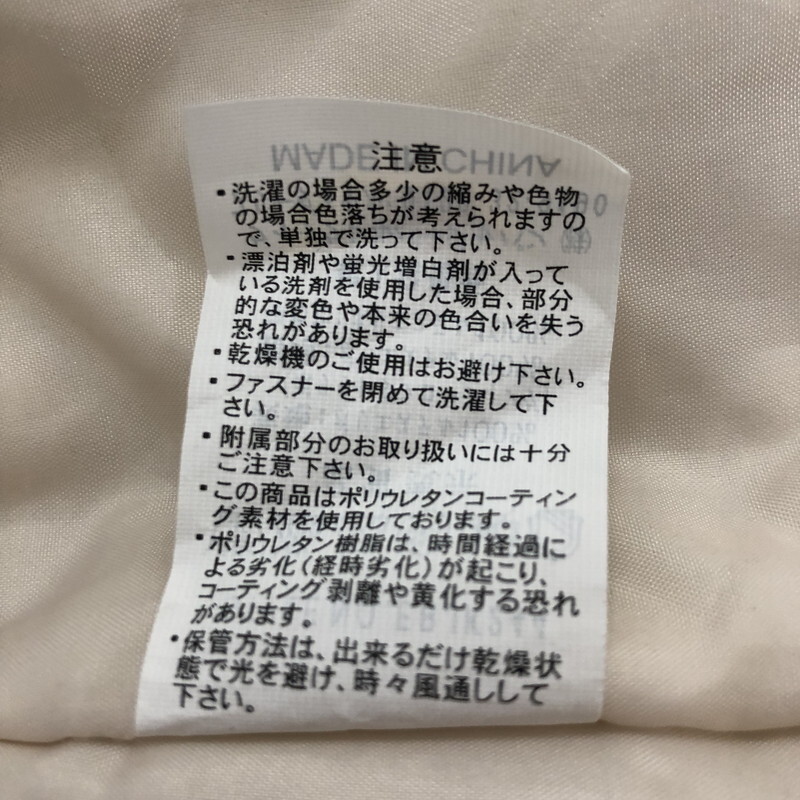 注意
・洗濯の場合多少の縮みや色物
の場合色落ちが考えられますの
で、単独で洗って下さい。
・漂泊剤や蛍光増白剤が入って
いる洗剤を使用した場合、部分
的な変色や本来の色合いを失う
恐れがあります。
・乾燥機のご使用はお避け下さい。
・ファスナーを閉めて洗濯して下
さい。
・附属部分のお取り扱いには十分
ご注意下さい。
・この商品はポリウレタンコーティン
グ素材を使用しております。
・ポリウレタン樹脂は、時間経過に
よる劣化(経時劣化)が起こり、
コーティング剥離や黄化する恐れ
があります。
・保管方法は、出来るだけ乾燥状
態で光を避け、時々風通しして
下さい。
MADE IN CHINA